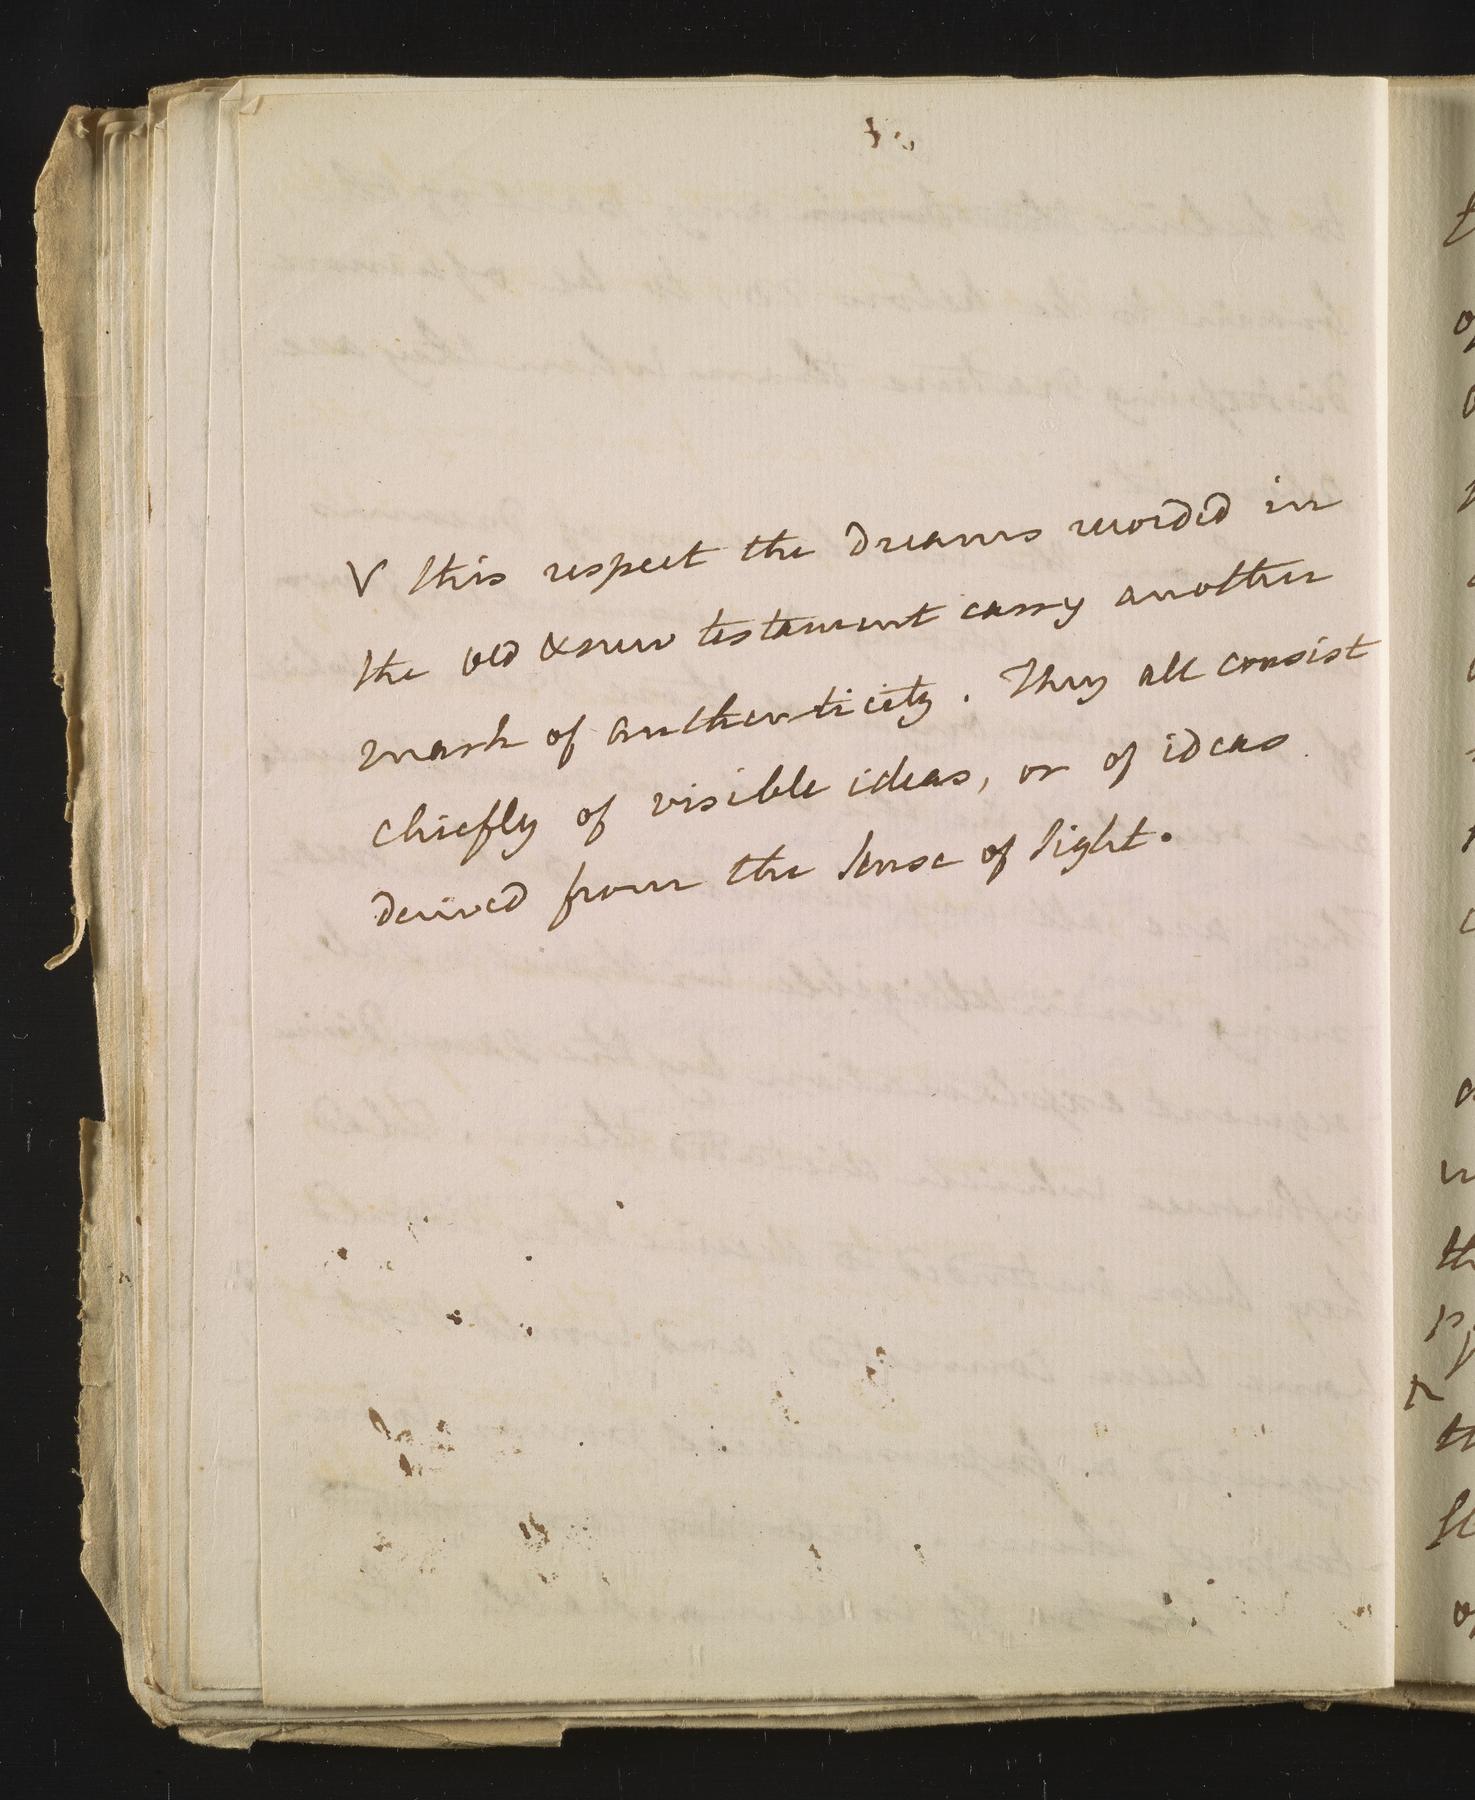 V this respect the dreams recorded in
the old & new testament carry another
mark of authenticity. They all consist
chiefly of visible ideas, or of ideas
derived from the sense of sight.